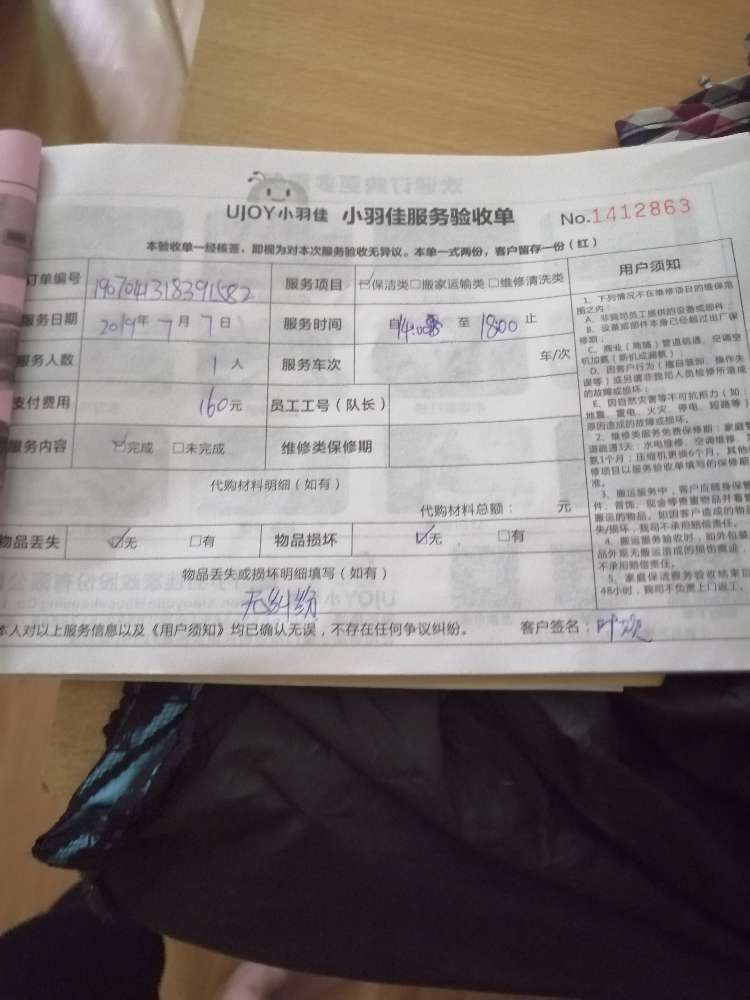 UJOY小羽佳 小羽佳服务验收单 No.1412863
本验收单一经核签，即视为对本次服务验收无异议。本单一式两份，客户留存一份（红）
订单编号 190704318391582 服务项目 ☑保洁类□搬家运输类□维修清洗类
服务日期 2019年7月7日 服务时间 自14:00 至 1800 止
服务人数 1人 服务车次 年/次
支付费用 160元 员工工号（队长）
服务内容 ☑完成 □未完成 维修类保修期
代购材料明细（如有）
代购材料总额： 元
物品丢失 ☑无 □有 物品损坏 ☑无 □有
物品丢失或损坏明细填写（如有）
无纠纷
本人对以上服务信息以及《用户须知》均已确认无误，不存在任何争议纠纷。 客户签名：叶
用户须知
1、下列情况不在维修项目的维保范
围之内：
A、非我司员工提供的设备或部件；
B、设备或部件本身已经超过出厂保
修期；
C、商业（商铺）管道疏通、空调空
机加氨（新机或漏氨）；
D、因客户行为（擅自装卸、操作失
误等）或另请非我司人员检修所造成
的故障或损坏；
E、因自然灾害等不可抗拒力（如：
地震、雷电、火灾、停电、短路等）
原因造成的故障或损坏。
2、维修类服务免费保修期：家庭管
道疏通3天；水电维修、空调维修、
氨1个月；压缩机更换6个月，其他
修项目以服务验收单填写的保修期
准。
3、搬运服务中，客户应随身保管
件、首饰、现金等贵重物品并看
搬运的物品，如因客户造成的物
失/损坏，我司不承担赔偿责任。
4、搬运服务验收时，如外包装
品外观无搬运造成的损伤痕迹，
不承担赔偿责任。
5、家庭保洁服务验收结束后
48小时，我司不负责上门返工。